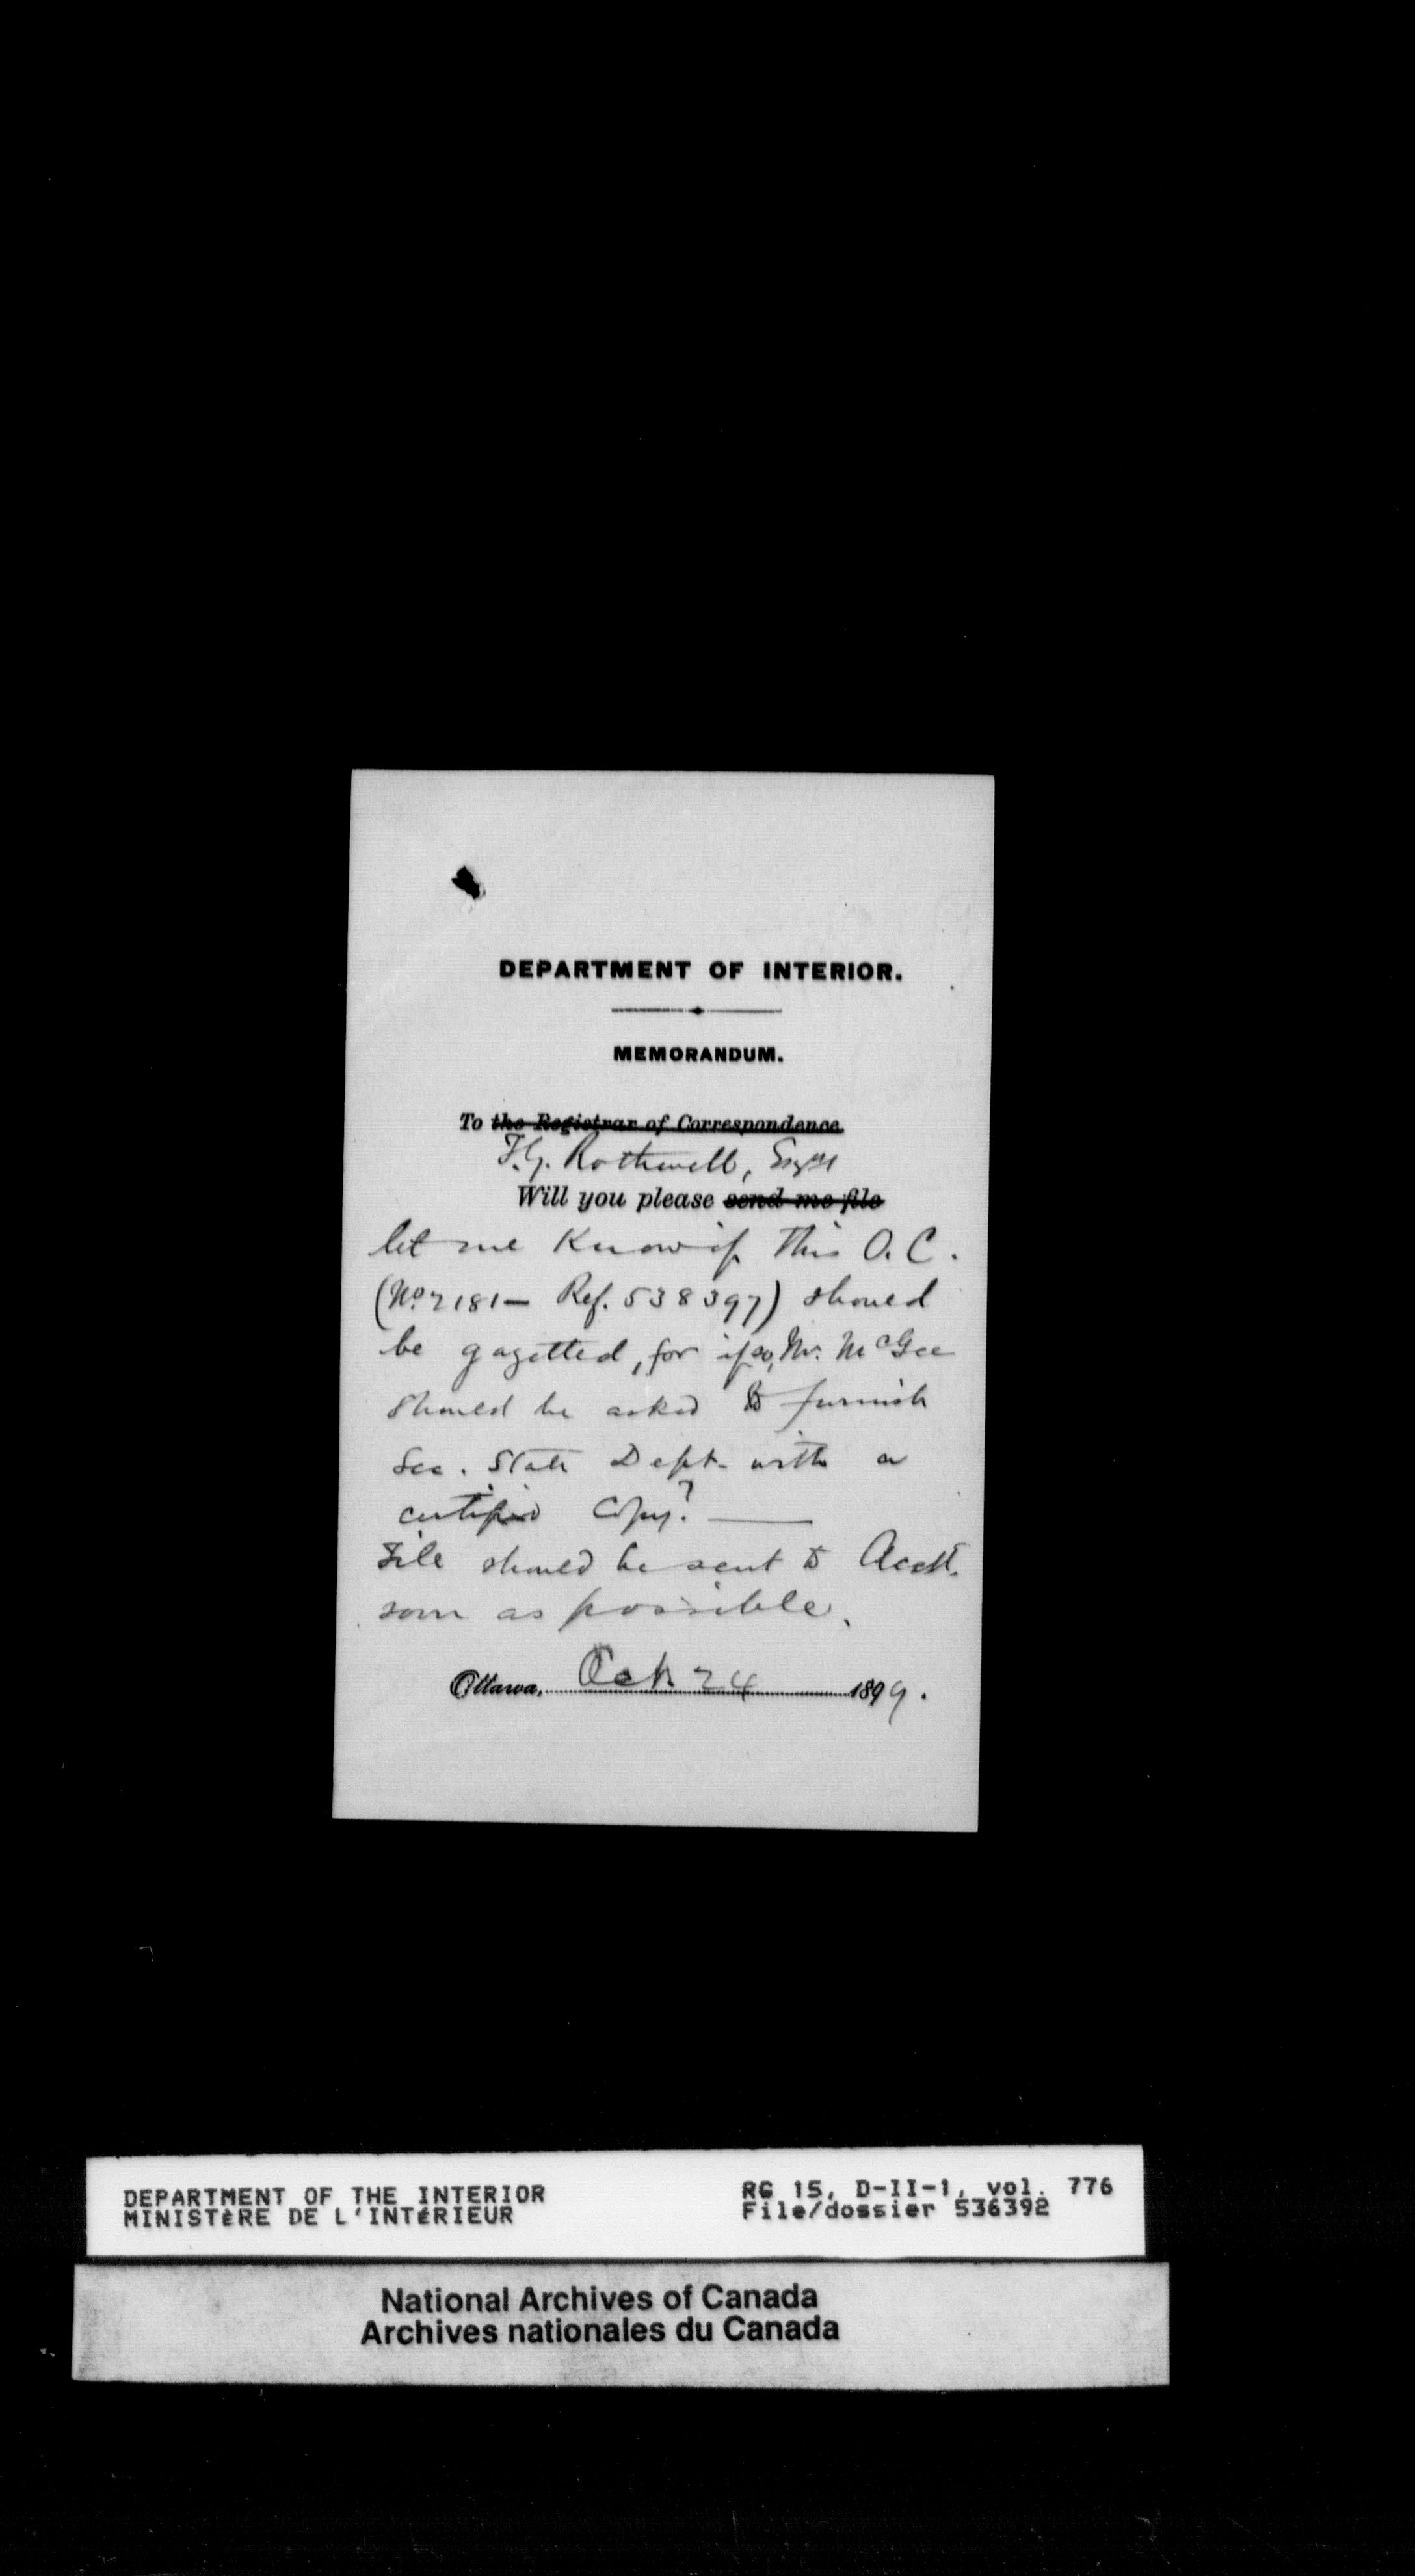 DEPARTMENT OF INTERIOR.
MEMORANDUM.
To the Registrar of Correspondence
T.G. Rothwell, Esqre
Will you please send me file
let me know if this O.C.
(No. 2181 — Ref. 538397) should
be gazetted, for if so, Mr. McGee
should be asked to furnish
Sec. State Dept. with a
certified copy? —
File should be sent to Acct.
soon as possible.
Ottawa, Oct 24 1899.
DEPARTMENT OF THE INTERIOR
MINISTÈRE DE L'INTÉRIEUR
RG 15, D-II-1, vol. 776
File/dossier 536392
National Archives of Canada
Archives nationales du Canada